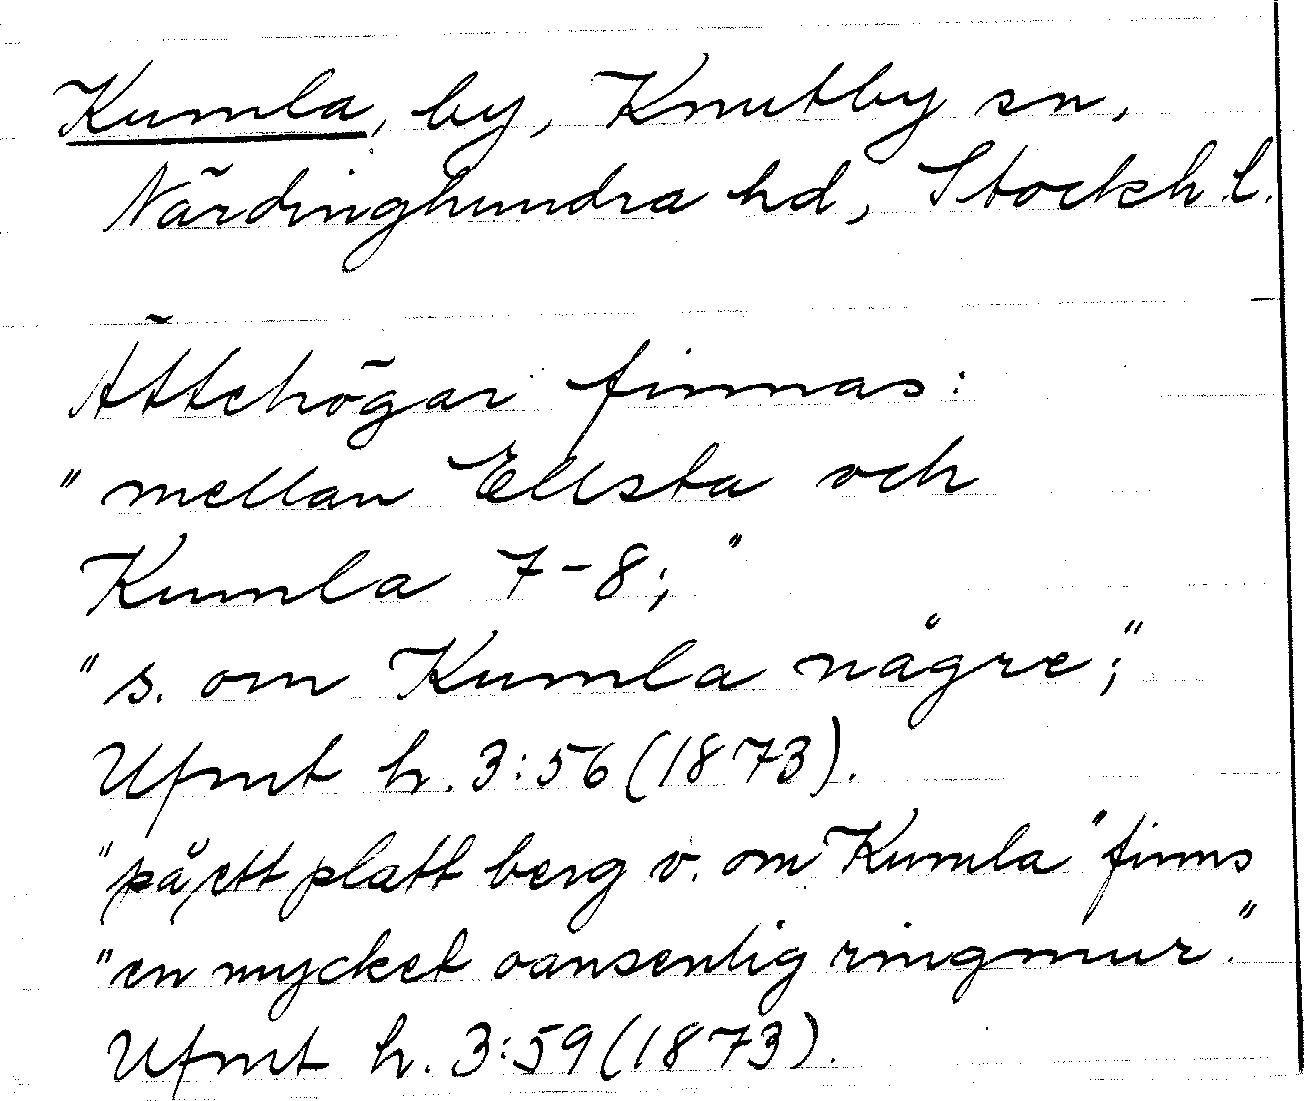 Kumla, by, Knutby sn,
Närdinghundra hd, Stockh l.
Ättehögar finnas:
"mellan Ellsta och
Kumla 7-8;"
"s. om Kumla någre";
Ufmt h. 3:56 (1873).
"på ett platt berg v. om Kumla" finns
"en mycket oansenlig ringmur."
Ufmt h. 3:59 (1873).